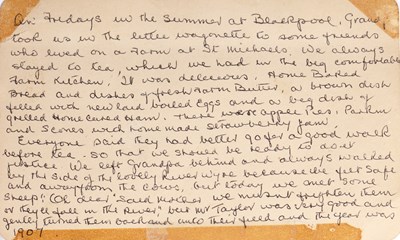 On Fridays in the Summer at Blackpool, Grandpa
took us in the little wagonette to some friends
who lived on a Farm at St Michaels. We always
stayed to tea, which we had in the big comfortable
Farm Kitchen, It was delecious. Home Baked
Bread and dishes of fresh Farm Butter, a brown dish
filled with new laid boiled Eggs and a big dish of
grilled Home Cured Ham. There were Apple Pies. Parkin
and Scones with home made Strawberry Jam
Everyone said they had better go for a good walk
before tea. So that we should be ready to do it
justice. We left Grandpa behind and always walked
by the side of the lovely River Wyre because we felt safe
and away from the Cows, but today we met some
Sheep! "Oh dear" Said Mother we mustnt frighten them
or they'll fall in the River, but Mr Taylor was very good and
gently turned them back and into their field and the year was
1907